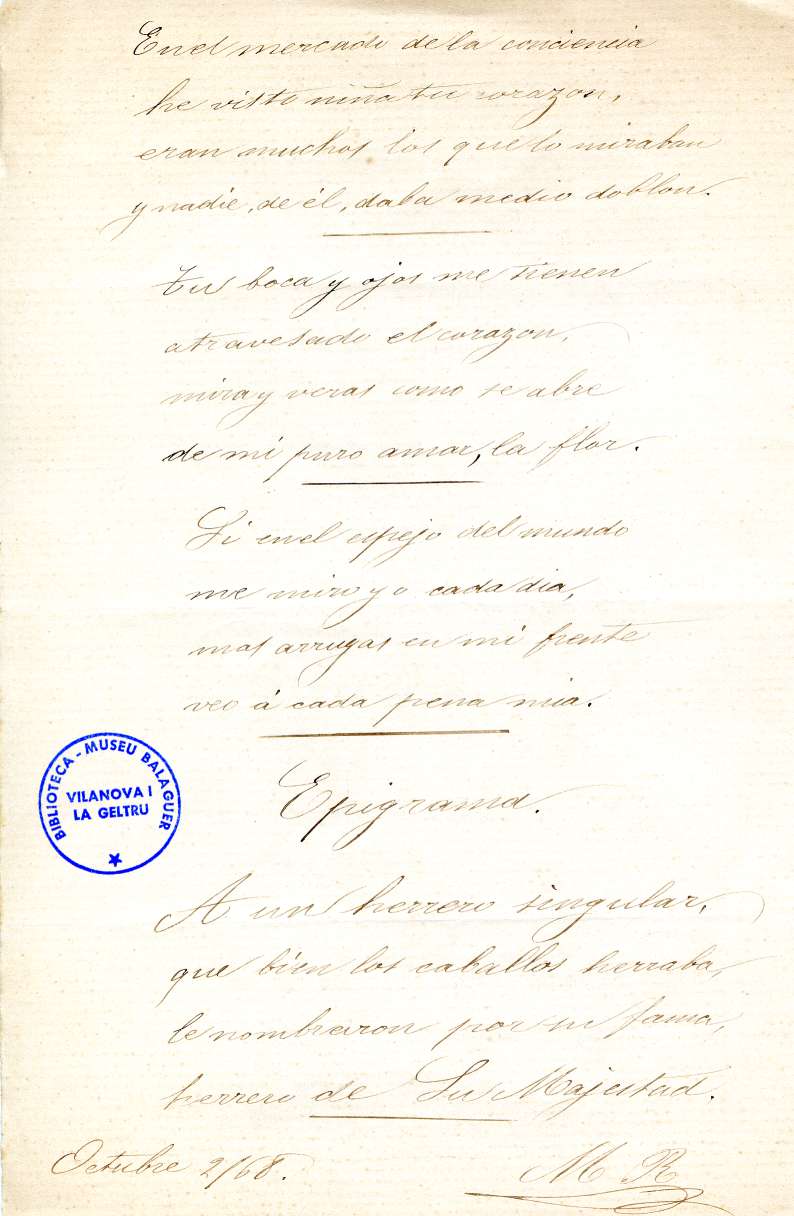 En el mercado de la conciencia
he visto niña tu corazon,
eran muchos los que lo miraban
y nadie, de él, daba medio doblon.
Tu boca y ojos me tienen
atravesado el corazon,
mira y veras como se abre
de mi puro amor, la flor.
Si en el espejo del mundo
me miro yo cada dia,
mas arrugas en mi frente
veo á cada pena mia.
BIBLIOTECA - MUSEU BALAGUER
VILANOVA I
LA GELTRU
Epigrama.
A un herrero singular,
que bien los caballos herraba,
le nombraron por su fama,
herrero de Su Majestad.
Octubre 2/68.
M R